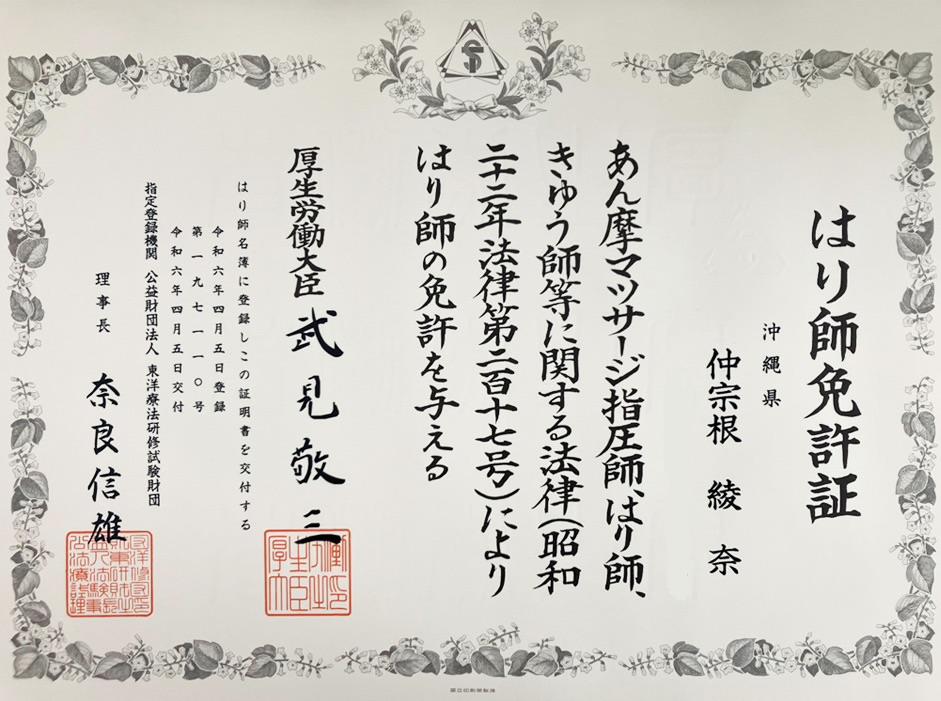 はり師免許証
沖縄県
仲宗根 綾奈
あん摩マツサージ指圧師、はり師、
きゆう師等に関する法律(昭和
二十二年法律第二百十七号)により
はり師の免許を与える
厚生労働大臣 武見敬三
はり師名簿に登録しこの証明書を交付する
令和六年四月五日登録
第一九七一一〇号
令和六年四月五日交付
指定登録機関 公益財団法人 東洋療法研修試験財団
理事長 奈良信雄
国立印刷局製造